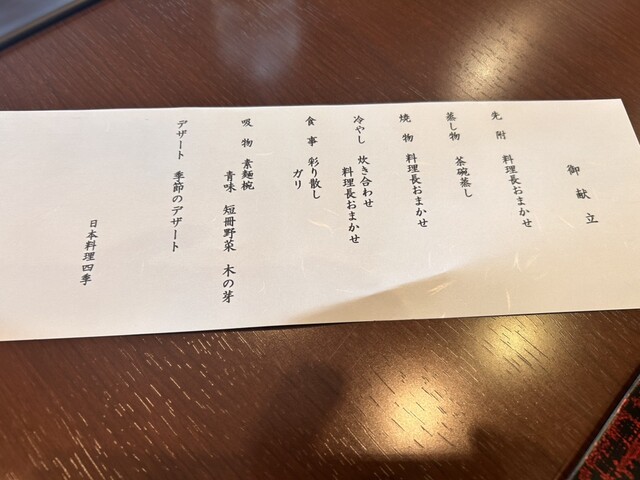 御献立
先附 料理長おまかせ
蒸し物 茶碗蒸し
焼物 料理長おまかせ
冷やし 炊き合わせ
料理長おまかせ
食事 彩り散し
ガリ
吸物 素麺椀
青味 短冊野菜 木の芽
デザート 季節のデザート
日本料理四季